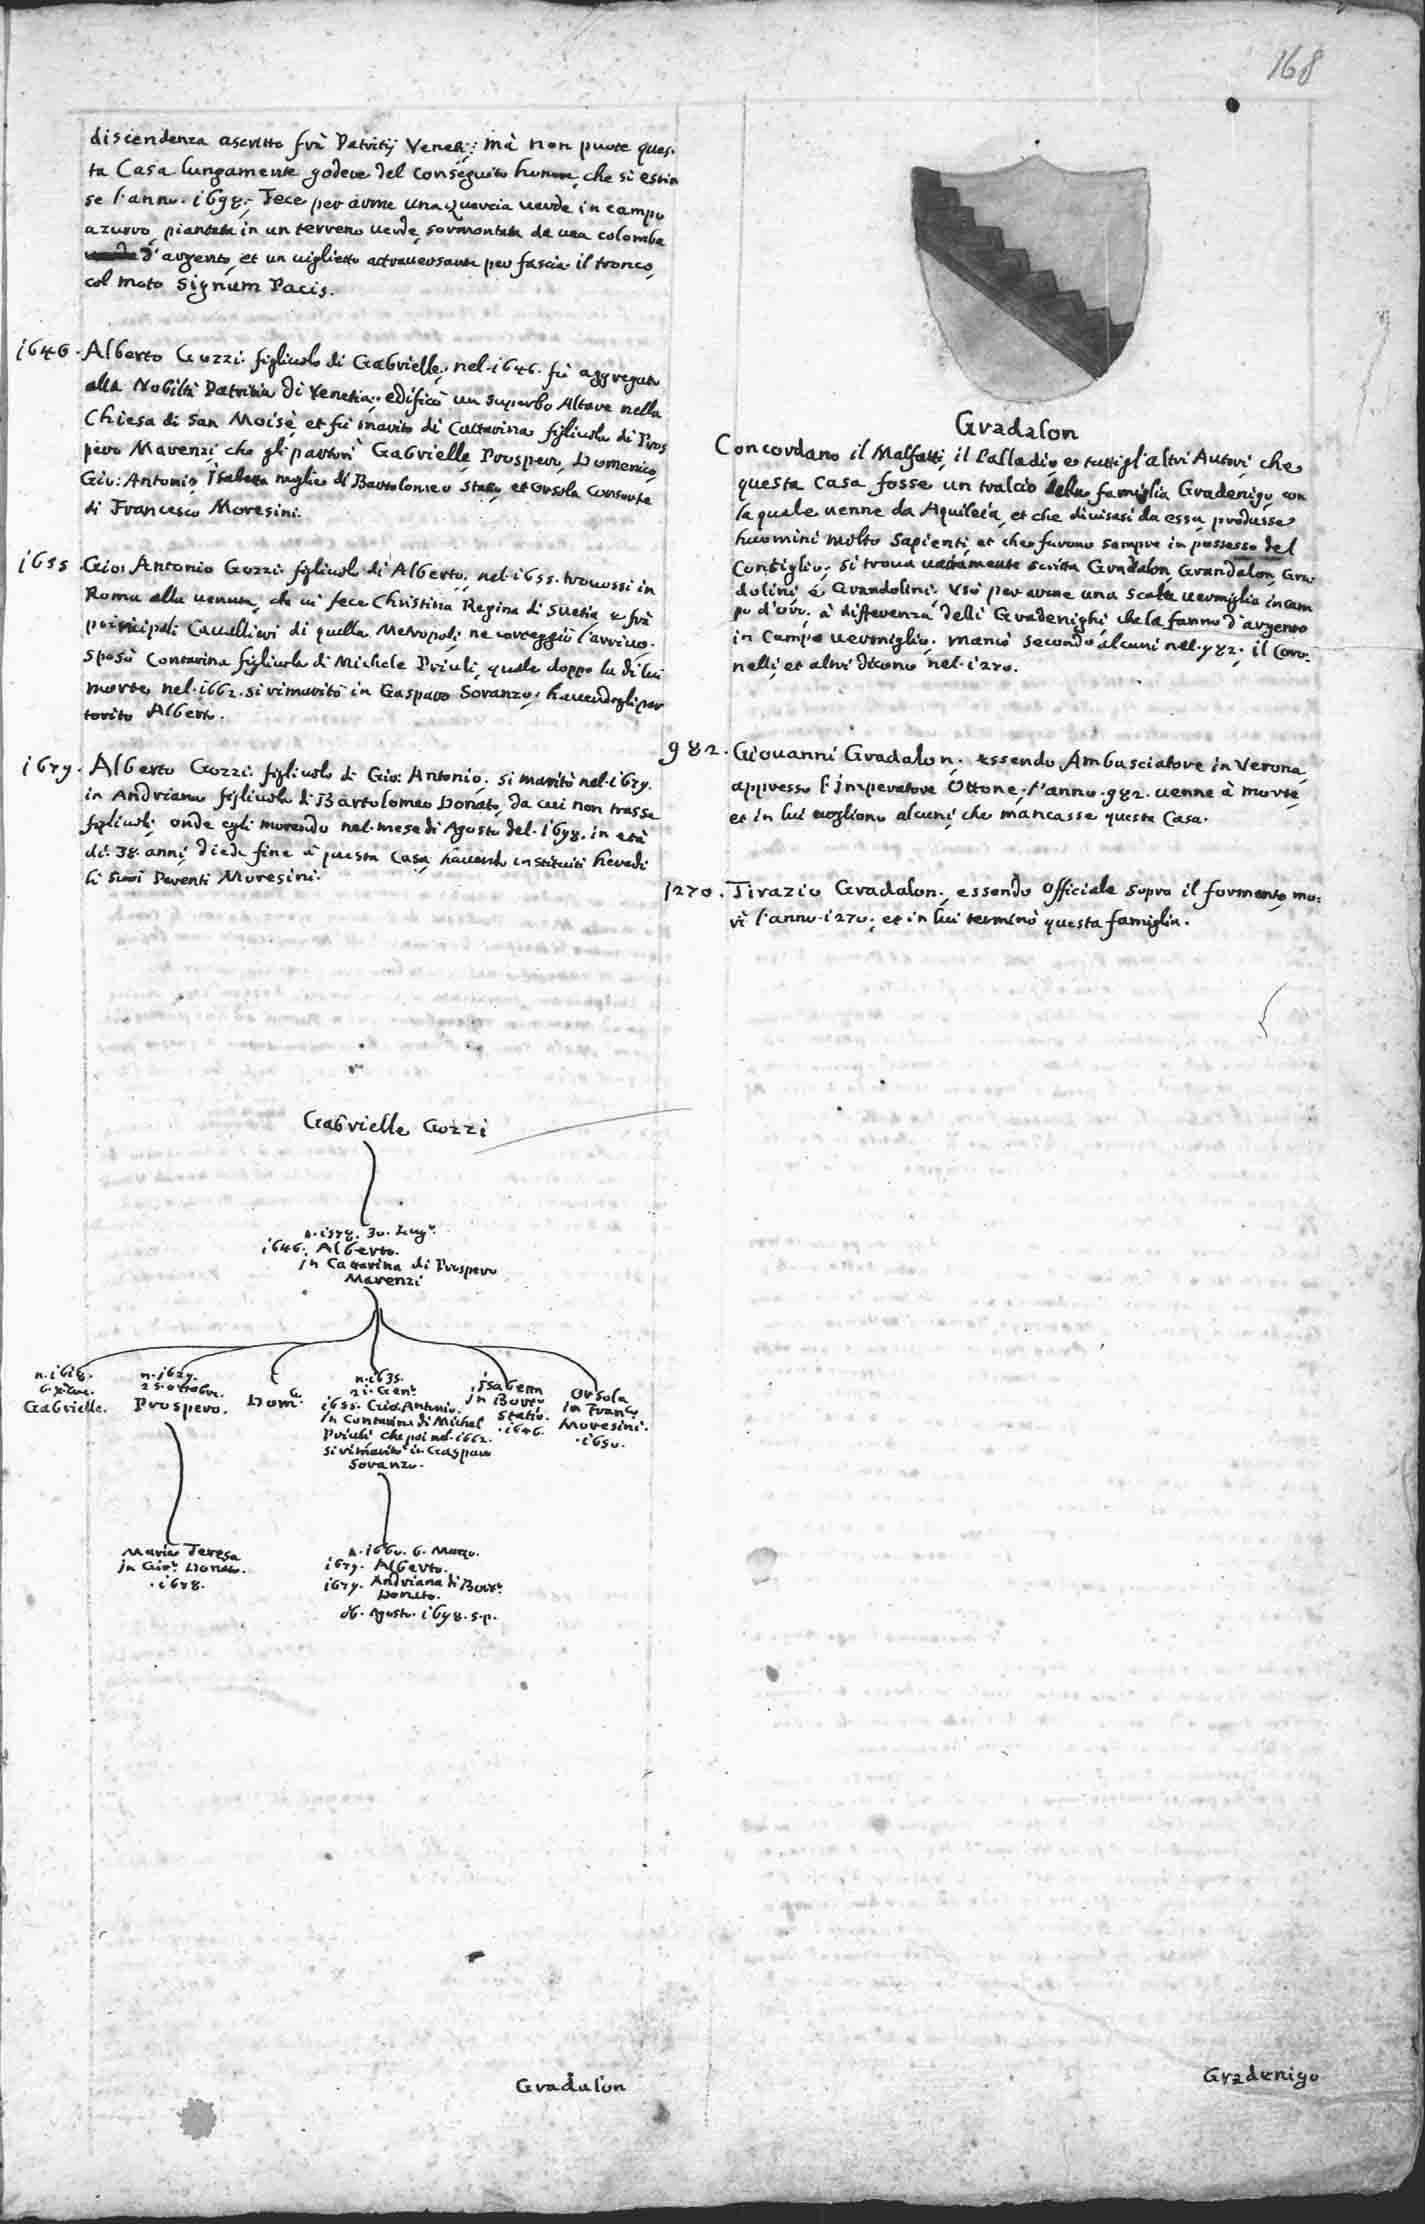 168
discendenza ascritto frà Patritij Veneti; mà non puote ques-
ta Casa lungamente godere del conseguito honore, che si estin
se l'anno 1698. Fece per arme una Quercia verde in campo
azurro, piantata in un terreno verde, sormontata da una colomba
d'argento, et un viglietto attraversante per fascia il tronco,
col moto Signum Pacis.
1646. Alberto Gozzi figliuolo di Gabrielle, nel 1646. fù aggregato
alla Nobiltà Patritia di Venetia; edificò un superbo Altare nella
Chiesa di San Moisè, et fù marito di Cattarina figliuola di Pros
pero Marenzi, che gli partorì Gabrielle, Prospero, Domenico,
Gio: Antonio, Isabetta moglie di Bartolomeo Statio, et Orsola Consorte
di Francesco Moresini.
1655. Gio: Antonio Gozzi figliuolo di Alberto, nel 1655. trovossi in
Roma alla venuta, che vi fece Christina Regina di Suetia, e frà
principali Cavallieri di quella Metropoli, ne corteggiò l'arrivo.
Sposò Contarina figliuola di Michele Priuli, quale doppo la di lui
morte, nel 1662. si rimaritò in Gasparo Soranzo; havendogli par
torito Alberto.
1679. Alberto Gozzi figliuolo di Gio: Antonio, si maritò nel 1679.
in Andriana figliuola di Bartolomeo Donato, da cui non trasse
figliuoli; onde egli morendo nel mese di Agosto del 1698. in età
di 38. anni, diede fine à questa Casa, havendo instituiti heredi
li suoi Parenti Moresini.
Gabrielle Gozzi
n. 1578. 30. Lug.º
1646. Alberto.
in Cattarina di Prospero
Marenzi
n. 1618.
Gabrielle.
n. 1627.
25. ottobre.
Prospero.
Dom.co
n. 1635.
21. Gen.º
1655. Gio: Antonio.
in Contarina di Michel
Priuli che poi nel 1662.
si rimaritò in Gasparo
Soranzo.
Isabetta
in Bort.º
Statio.
1646.
Orsola
in Fran.co
Moresini.
1650.
Maria Teresa
in Gio: Donato.
1678.
n. 1660. 6. Marzo.
1679. Alberto.
1679. Andriana di Bort.º
Donato.
Agosto. 1698. s.p.
Gradalon
Gradalon
Concordano il Malfatti, il Palladio, e tutti gl'altri Autori, che
questa Casa fosse un tralcio della famiglia Gradenigo, con
la quale venne da Aquileia, et che divisasi da essa, produsse
huomini molto Sapienti, et che furono sempre in possesso del
Consiglio; si trova variamente scritta Gradalon, Grandalon, Gra-
dolini, è Grandolini. Usò per arme una Scala vermiglia in cam
po d'oro, à differenza delli Gradenighi, che la fanno d'argento
in Campo vermiglio; mancò secondo alcuni nel 982. il Coro-
nelli, et altri dicono nel 1270.
982. Giovanni Gradalon, essendo Ambasciatore in Verona,
appresso l'Imperatore Ottone, l'anno 982. venne à morte,
et in lui vogliono alcuni, che mancasse questa Casa.
1270. Tirazio Gradalon, essendo Officiale sopra il formento, mo-
rì l'anno 1270; et in lui terminò questa famiglia.
Gradenigo